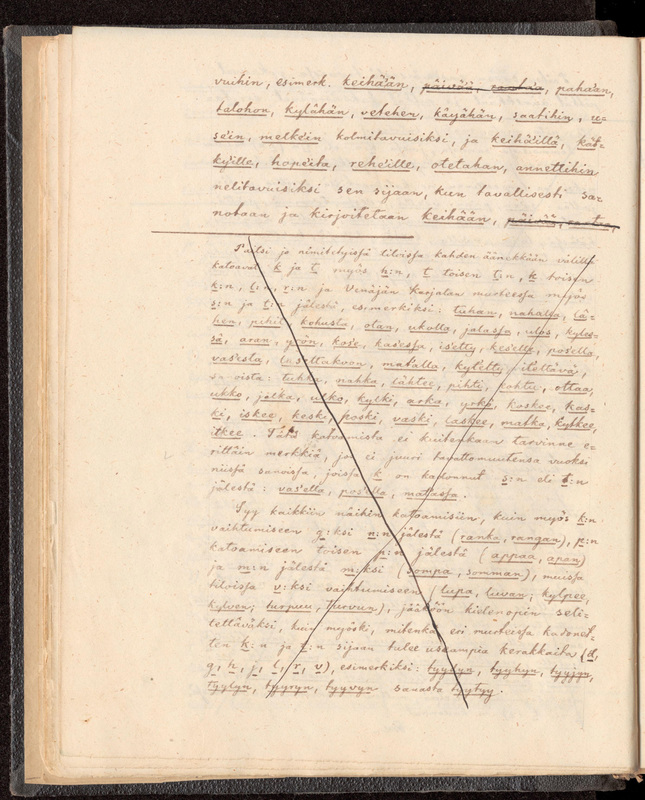 vuihin, esimerk. keihä'än, päivä'ä, rauta'a, paha'an,
talohon, kylähän, vetehen, käyähän, saatihin, u-
se'in, melke'in kolmitavuisiksi, ja keihä'illä, kät-
ky'ille, hope'ita, rehe'ille, otetahan, annettihin
nelitavuisiksi sen sijaan, kun tavallisesti sa-
notaan ja kirjoitetaan keihään, päivää,
Paitsi jo nimitetyissä tiloissa kahden äänekkään väliltä
katoavat k ja t myös h:n, t toisen t:n, k toisen
k:n, l:n, r:n ja Venäjän Karjalan murteessa myös
s:n ja t:n jälestä, esimerkiksi: tuhan, nahalla, lä-
hen, pihit, kohusta, otan, ukolla, jalassa, ulos, kyles-
sä, aran, yrön, kose, kas'essa, is'etty, kes'ellä, pos'ella,
vas'esta, las'ettakoon, mat'alla, kyt'etty, it'ettävä,
sanoista: tuhka, nahka, lähtee, pihti, kohtu, ottaa,
ukko, jalka, ulko, kylki, arka, yrkö, koskee, kas-
ki, iskee, keski, poski, vaski, laskee, matka, kytkee,
itkee. Tätä katoamista ei kuitenkaan tarvinne e-
rittäin merkkiä, jos ei juuri tavattomuutensa vuoksi
niissä sanoissa, joissa k on kadonnut s:n eli t:n
jälestä: vas'ella, pos'ella, mat'assa.
Syy kaikkiin näihin katoamisiin, kuin myös k:n
vaihtumiseen g:ksi n:n jälestä (ranka, rangan), p:n
katoamiseen toisen p:n jälestä (appaa, apan)
ja m:n jälestä m:ksi (sompa, somman), muissa
tiloissa v:ksi vaihtumiseen (lupa, luvan; kylpee,
kylven; turpuu, turvun), jääköön kielenopin seli-
tettäväksi, kuin myöski, mitenkä eri murteissa kadonet-
ten k:n ja t:n sijaan tulee useampia kerakkaita (d,
g, h, j, l, r, v), esimerkiksi: tyydyn, tyyhyn, tyyjyn,
tyylyn, tyyryn, tyyvyn sanasta tyytyy.